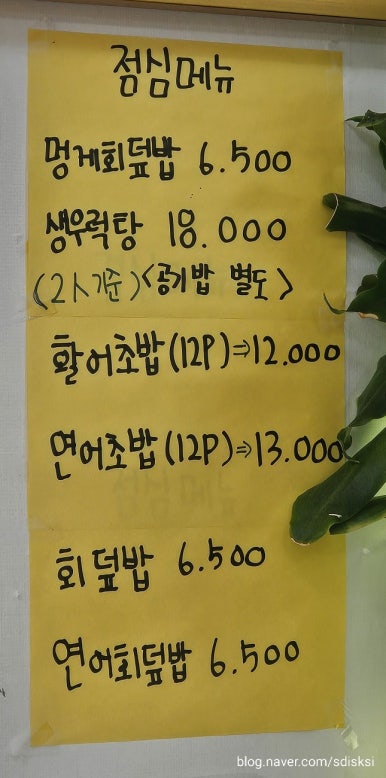 점심메뉴
멍게회덮밥 6.500
생우럭탕 18.000
(2人기준)<공기밥 별도>
활어초밥(12P)⇒12.000
연어초밥(12P)⇒13.000
회덮밥 6.500
연어회덮밥 6.500
blog.naver.com/sdisksi